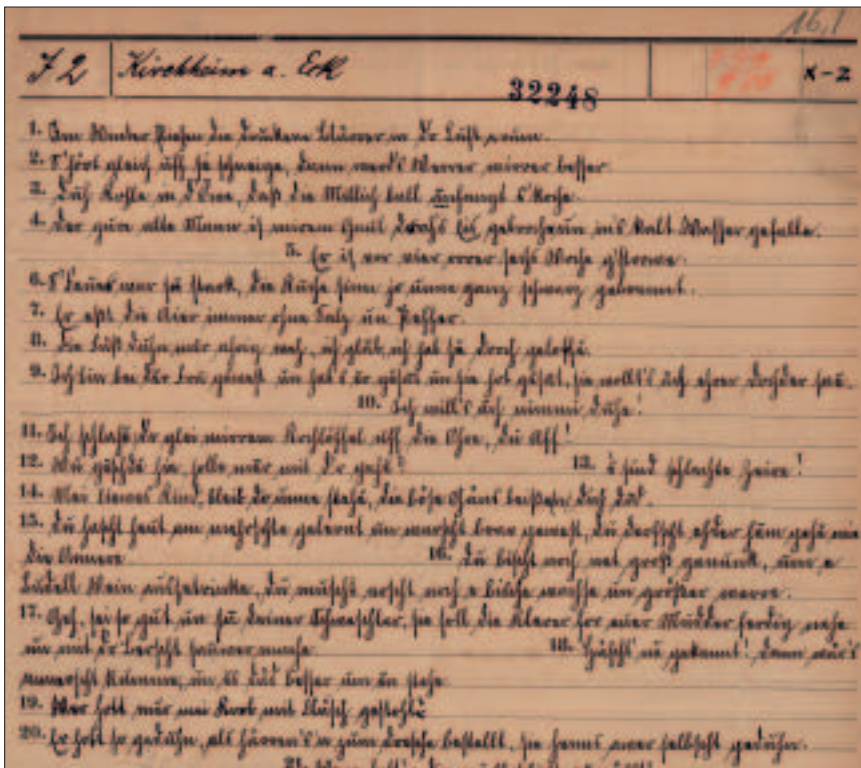 16,1
J 2 Kirchheim a. Eck 32248 K-Z
1. Em Winter fliehen die druckene blärrer in dr Luft erum.
2. S'hört gleich uff zu schneige, dann werd's Werrer wirrer besser
3. Duh Kohle in d'Ove, daß die Millich ball anfangt z'koche
4. Der gure alte Mann is mirem Gaul dorchs Eis gebroche un in's kalt Wasser gefalle.
5. Er is vor vier orrer sechs Woche g'storwe.
6. S'Feuer war zu stark, die Kuche sinn jo unne ganz schwarz gebrennt.
7. Er eßt die Aier immer ohne Salz un Peffer.
8. Die Füß duhn mir weh, ich glab, ich hab se dorch geloffe.
9. Ich bin bei der Fra gewest un hab's ir gsagt un sie hot gsagt, sie wollt's ach ehrer Dochder sa.
10. Ich will's ach nimmi duhe!
11. Ich schlag dr glei mirrem Kochlöffel uff die Ohre, du Aff!
12. Wu gehschde hie, solle mir mit dr geh?
13. s'sind schlechte Zeire!
14. Mei liewes Kind, bleib do unne stehe, die böse Gäns beißen dich dod.
15. Du hascht heut am mehrschte gelernt un warscht brav gewest, du derfscht ehder häm gehe wie
die Annere
16. Du bischt noch net groß genunk, um e
Budell Wein auszetrinke, du muscht erscht noch e bische wachse un größer werre.
17. Geh, sei so gut un sa deiner Schweschter, sie soll die Kleerer for eier Mudder ferdig nehe
un mit de Berscht sauwer mache
18. Häscht en gekennt! dann wär's
annerscht kumme, un es dät besser um en stehe
19. Wer hott mir mei Korb mit Fläsch gestohle
20. Er hott so geduhn, als härren's en zum dresche bestellt, sie henns awer selbscht geduhn.